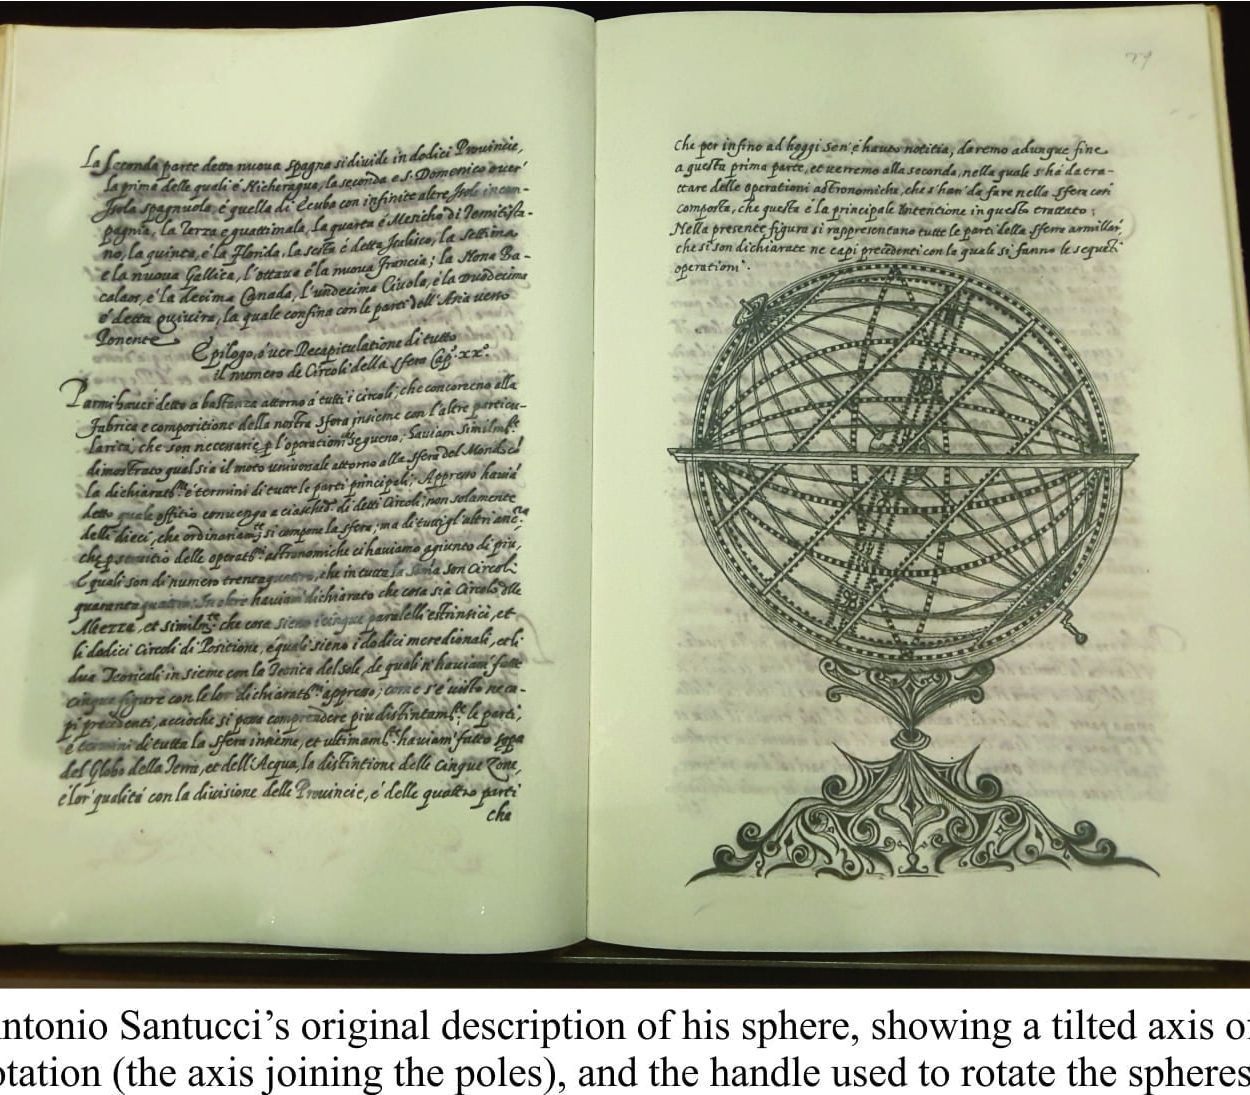 La Seconda parte detto nuova Spagna si divide in dodici Provincie,
la prima delle quali é Nicheragua, la seconda e S. Domenico over'
Isola Spagnuola, é quella di Ecuba con infinite altre Isole incon-
pagnia, la Terza e quattimala, la quarta é Menicho di Temitista-
no, la quinta, é la Florida, la sesta é detta Jalisco, la settima
e la nuova Gallica, l'ottava é la nuova francia; la Nona Ba-
calaos, é la decima Canada, l'undecima Civola, é la duodecima
é detta quivira, la quale confina con le parti dell'Asia verso
Ponente
Epilogo, ó ver Recapitulatione di tutto
il numero de Circoli della sfera Cap.º xxº.
Parmi haver detto a bastanza attorno a tutti i circoli, che concorreno alla
fabrica e compositione della nostra Sfera insieme con l'altre particu-
larità, che son necessarie l'operationi segueno, Haviam
dimostrato qual sia il moto universale attorno alla sfera del Mondo, é
la é termini di tutte le parti principali; Appresso haviā
detto quale offitio convenga a di detti Circoli, non solamente
delle dieci, che si compone la sfera; ma di tutti gl'altri
che servitio delle astronomiche ci haviamo agiunto di piu,
E quali son di numero trentaquattro, che in tutta la son Circoli
quarantaquattro: In oltre haviam' dichiarato che cosa sia Circolo dlle
Altezza, et che cosa sieno i cinque paralelli estrinsici, et
li dodici Circoli di Positione, équali sieno i dodici meredionali, et li
dua Teoricali in sieme con la Teorica del sole, de quali n'haviam' fatte
cinque figure con le lor appresso; come s'é visto ne ca-
pi precedenti, accioche si possa comprendere piu le parti,
é termini di tutta la sfera insieme, et haviam' fatto sopa
del Globo della Terra, et dell'Acqua, la distintione delle Cinque Zone,
é lor' qualitá con la divisione delle Provincie, é delle quattro parti
che
79
Che per infino ad hoggi sen'é havuto notitia, daremo adunque fine
a questa prima parte, et verremo alla seconda, nella quale s'há da tra-
ttare delle operationi astronomiche, che s'han' da fare nella sfera cosí
composta, che questa é la principale Intentione in questo trattato;
Nella presente figura si rappresentano tutte le parti della sfera armillar'
che si son dichiarate ne capi precedenti con la quale si fanno le seguēti
operationi.
ntonio Santucci's original description of his sphere, showing a tilted axis o
otation (the axis joining the poles), and the handle used to rotate the spheres